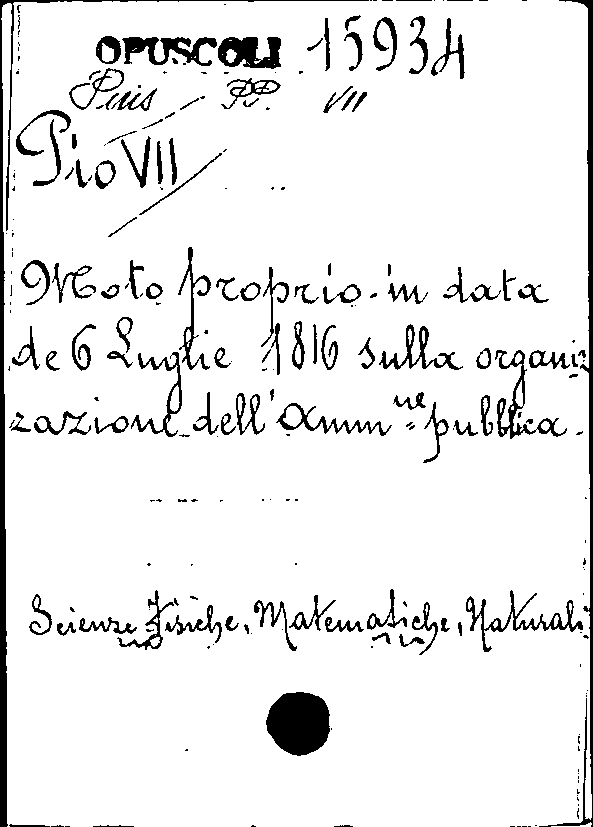 OPUSCOLI 15934
Pius PP. VII
Pio VII
Moto proprio in data
de 6 Luglie 1816 sulla organiz
zazione dell'Amm.ne pubblica.
Scienze Fisiche, Matematiche, Naturali